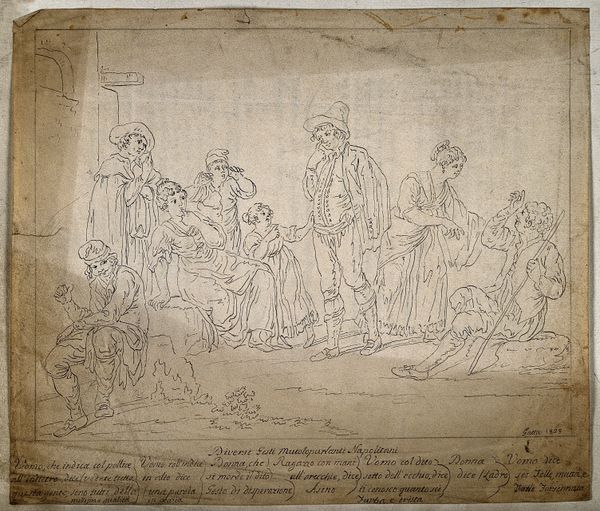 Gatta 1823
Diversi Gesti Mutoloparlanti Napolitani
Uomo, che indica col pollice
all'indietro, dice
questa gente, sono tutti della
medesima qualità
Uomo coll'indice
in alto dice
una parola
in grazia
Donna, che
si morde il dito
Gesto di disperazione
Ragazzo con mani
all'orecchie, dice
Asino
Uomo col dito
sotto dell'occhio, dice
ti conosco quanto sie
Furba e trista
Donna
dice Ladro
Uomo dice
sei Folle, matta, e